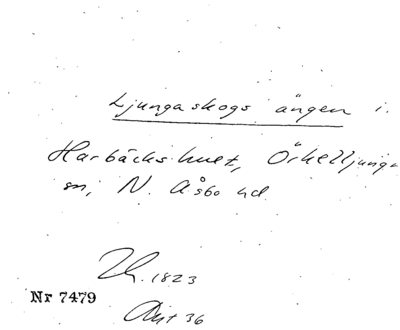 Ljungaskogs ängen i.
Harbäckshult, Örkelljunga
sn, N. Åsbo hd.
1823
Nr 7479
Akt 36